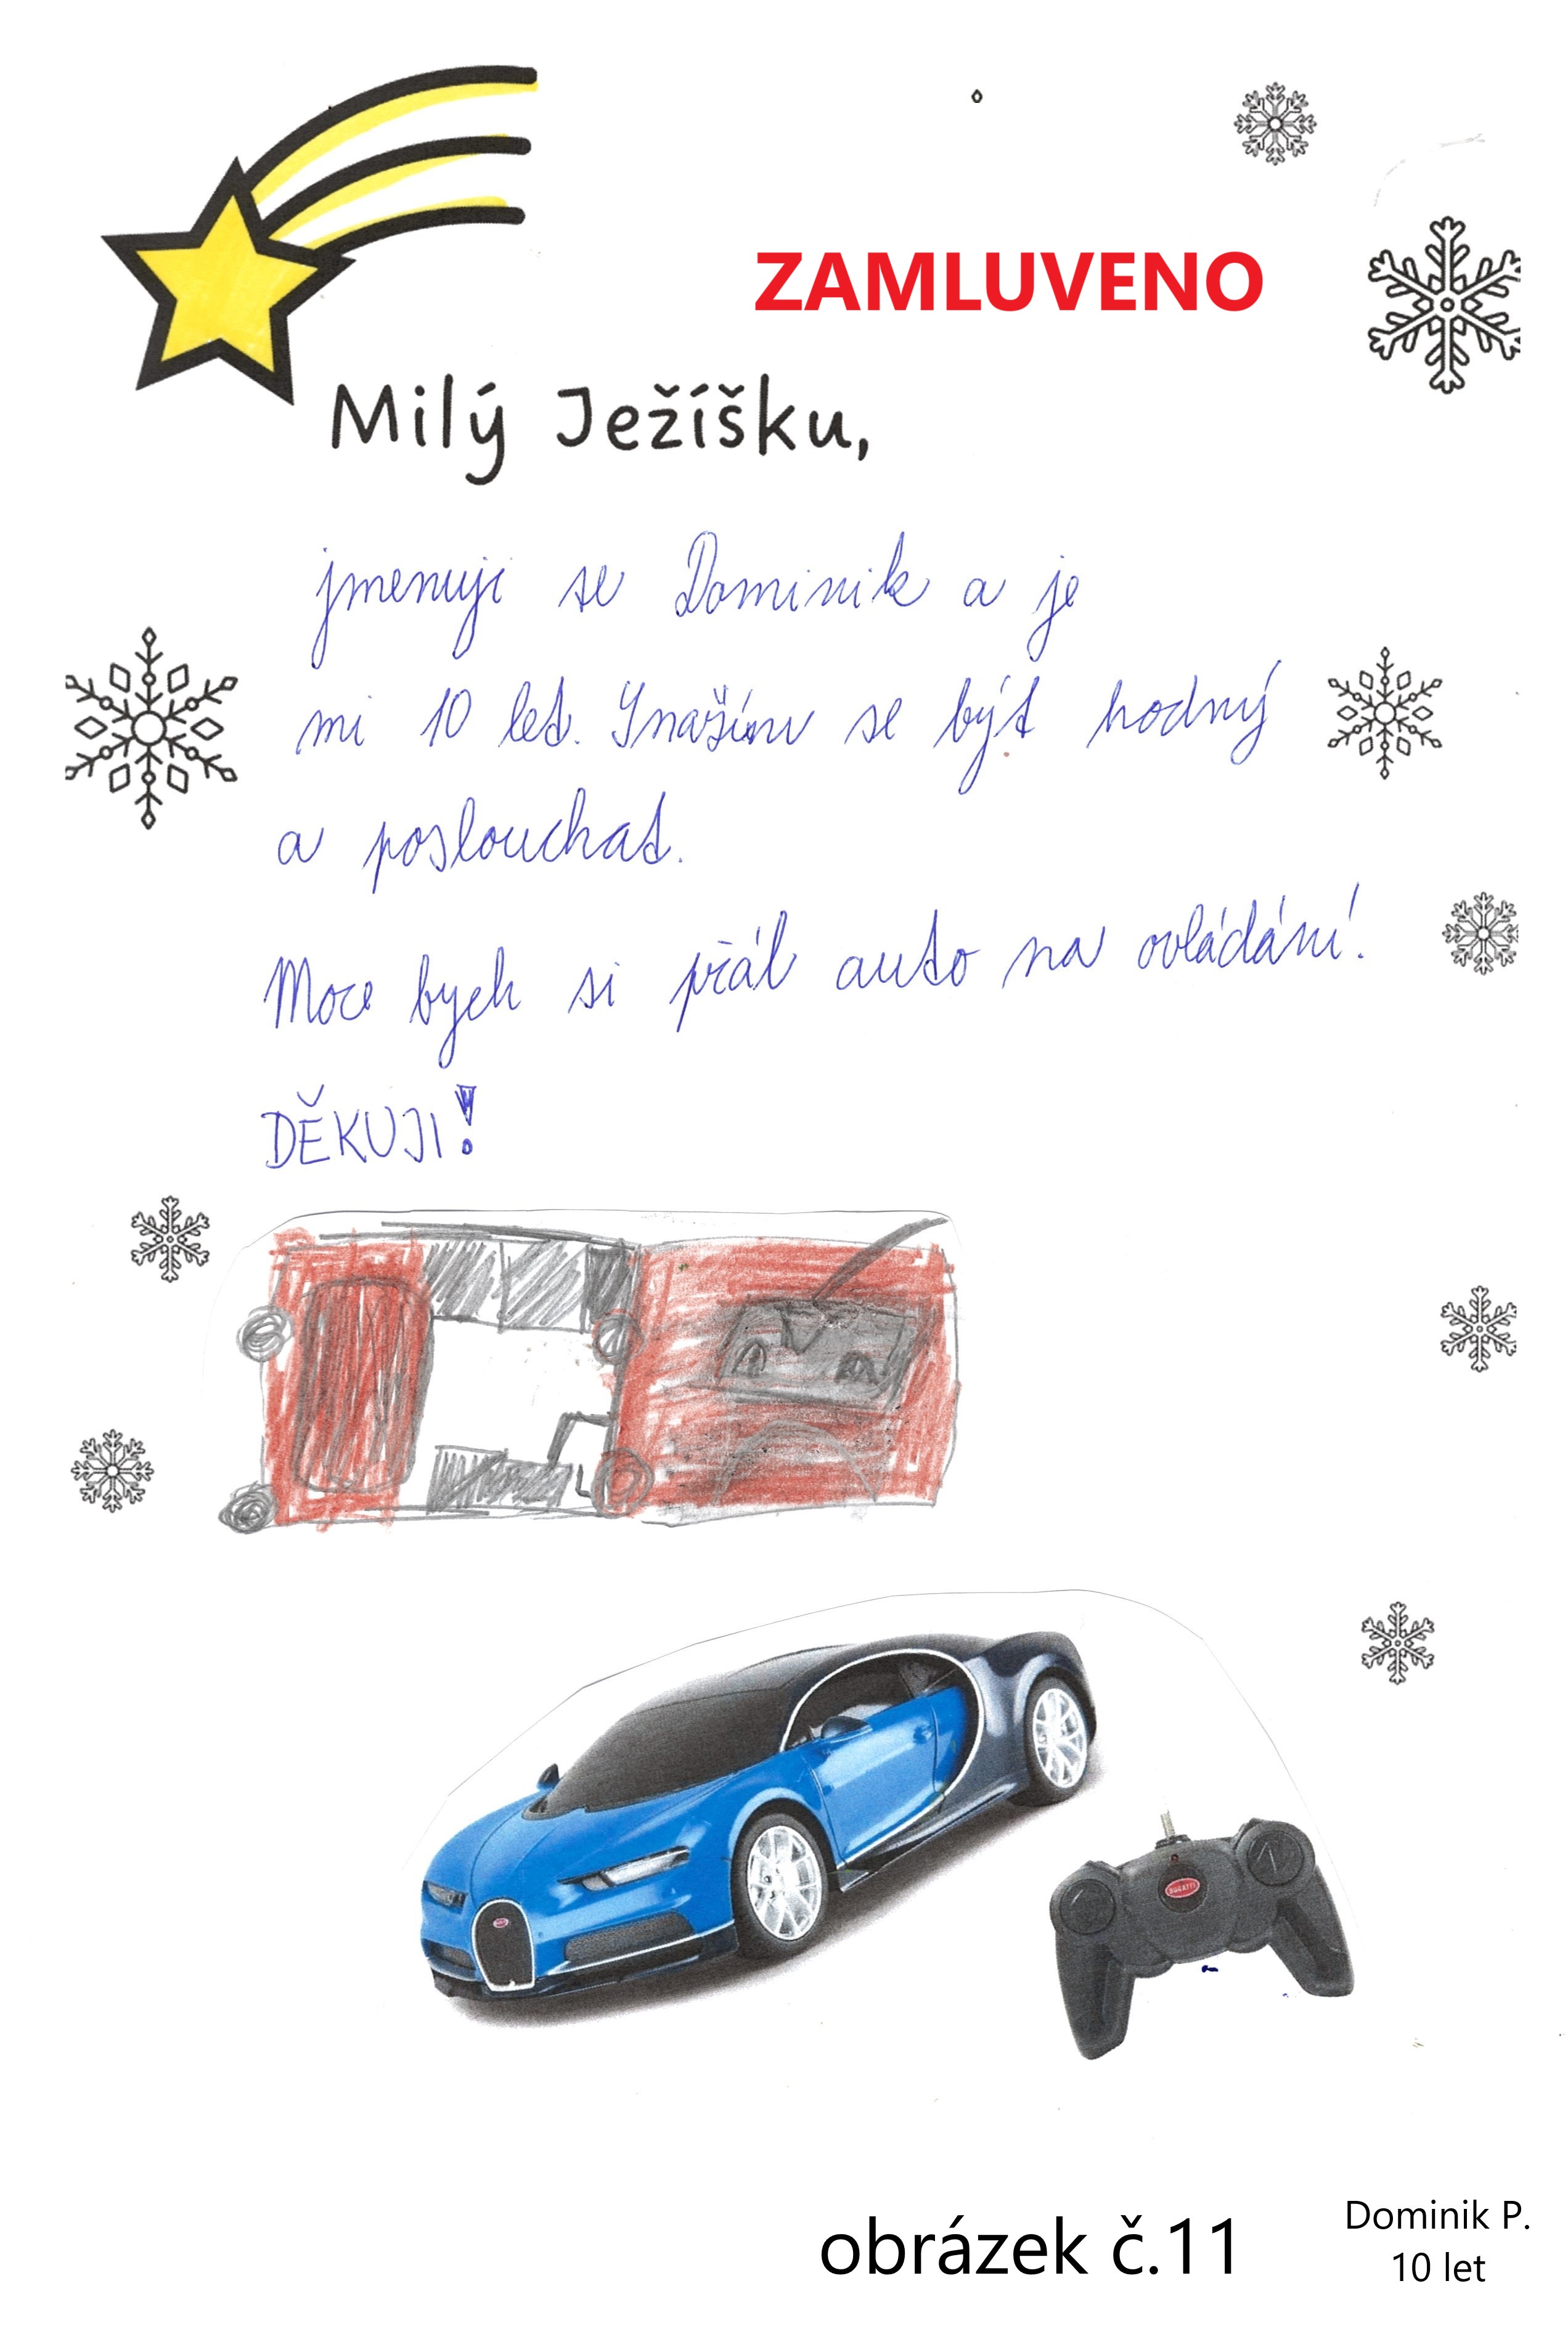 ZAMLUVENO
Milý Ježíšku,
jmenuji se Dominik a je
mi 10 let. Snažím se být hodný
a poslouchat.
Moce bych si přál auto na ovládání!
DĚKUJI!
BUGATTI
obrázek č.11
Dominik P.
10 let